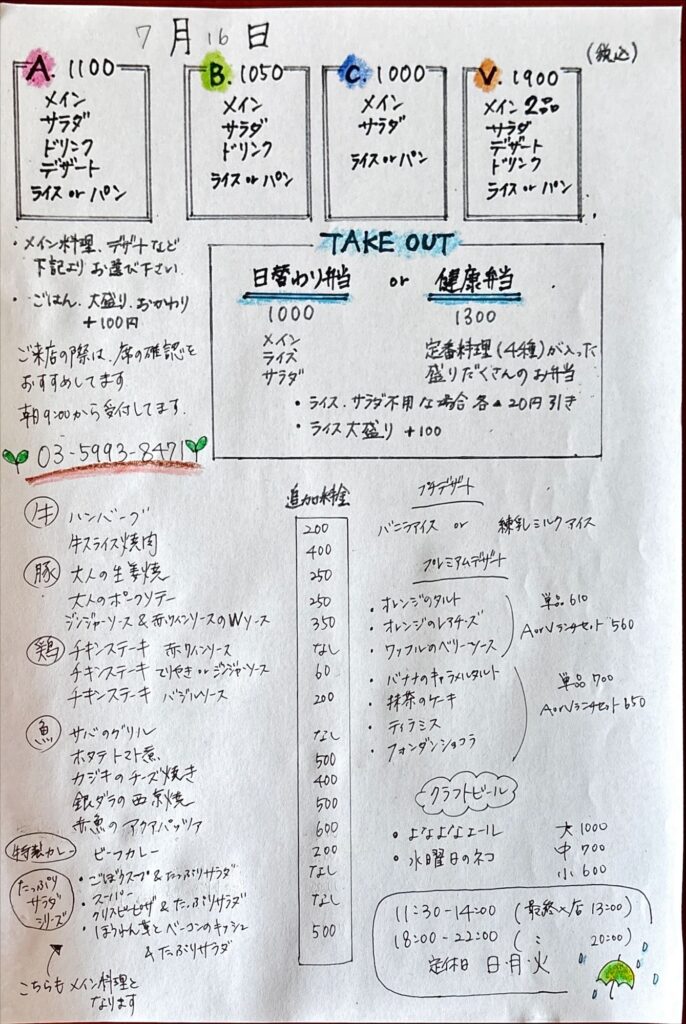 7月16日
(税込)
A. 1100
メイン
サラダ
ドリンク
デザート
ライス or パン
B. 1050
メイン
サラダ
ドリンク
ライス or パン
C. 1000
メイン
サラダ
ライス or パン
V. 1900
メイン 2品
サラダ
デザート
ドリンク
ライス or パン
・メイン料理、デザートなど
下記より お選び下さい
・ごはん、大盛り、おかわり
+100円
ご来店の際は、席の確認を
おすすめしてます
朝9:00から受付してます.
03-5993-8471
TAKE OUT
日替わり弁当 or 健康弁当
1000
メイン
ライス
サラダ
1300
定番料理(4種)が入った
盛りだくさんのお弁当
・ライス、サラダ不用な場合 各▲20円引き
・ライス大盛り +100
追加料金
牛 ハンバーグ 200
牛スライス焼肉 400
豚 大人の生姜焼 250
大人のポークソテー 250
ジンジャーソース & 赤ワインソースのWソース 350
鶏 チキンステーキ 赤ワインソース なし
チキンステーキ てりやき or ジンジャーソース 60
チキンステーキ バジルソース 200
魚 サバのグリル なし
ホタテトマト煮 500
カジキのチーズ焼き 400
銀ダラの西京焼 500
赤魚のアクアパッツァ 600
特製カレー ビーフカレー 200
たっぷり
サラダ
シリーズ
・ごぼうスープ & たっぷりサラダ なし
・スーパー
クリスピーピザ & たっぷりサラダ なし
・ほうれん草とベーコンのキッシュ 500
& たっぷりサラダ
こちらもメイン料理と
なります
プチデザート
バニラアイス or 練乳ミルクアイス
プレミアムデザート
・オレンジのタルト
・オレンジのレアチーズ
・ワッフルのベリーソース
単品 610
A or Vランチセット 560
・バナナのキャラメルタルト
・抹茶のケーキ
・ティラミス
・フォンダンショコラ
単品 700
A or Vランチセット 650
クラフトビール
・よなよなエール
・水曜日のネコ
大 1000
中 700
小 600
11:30-14:00 (最終入店 13:00)
18:00-22:00 ( 〃 20:00)
定休日 日・月・火